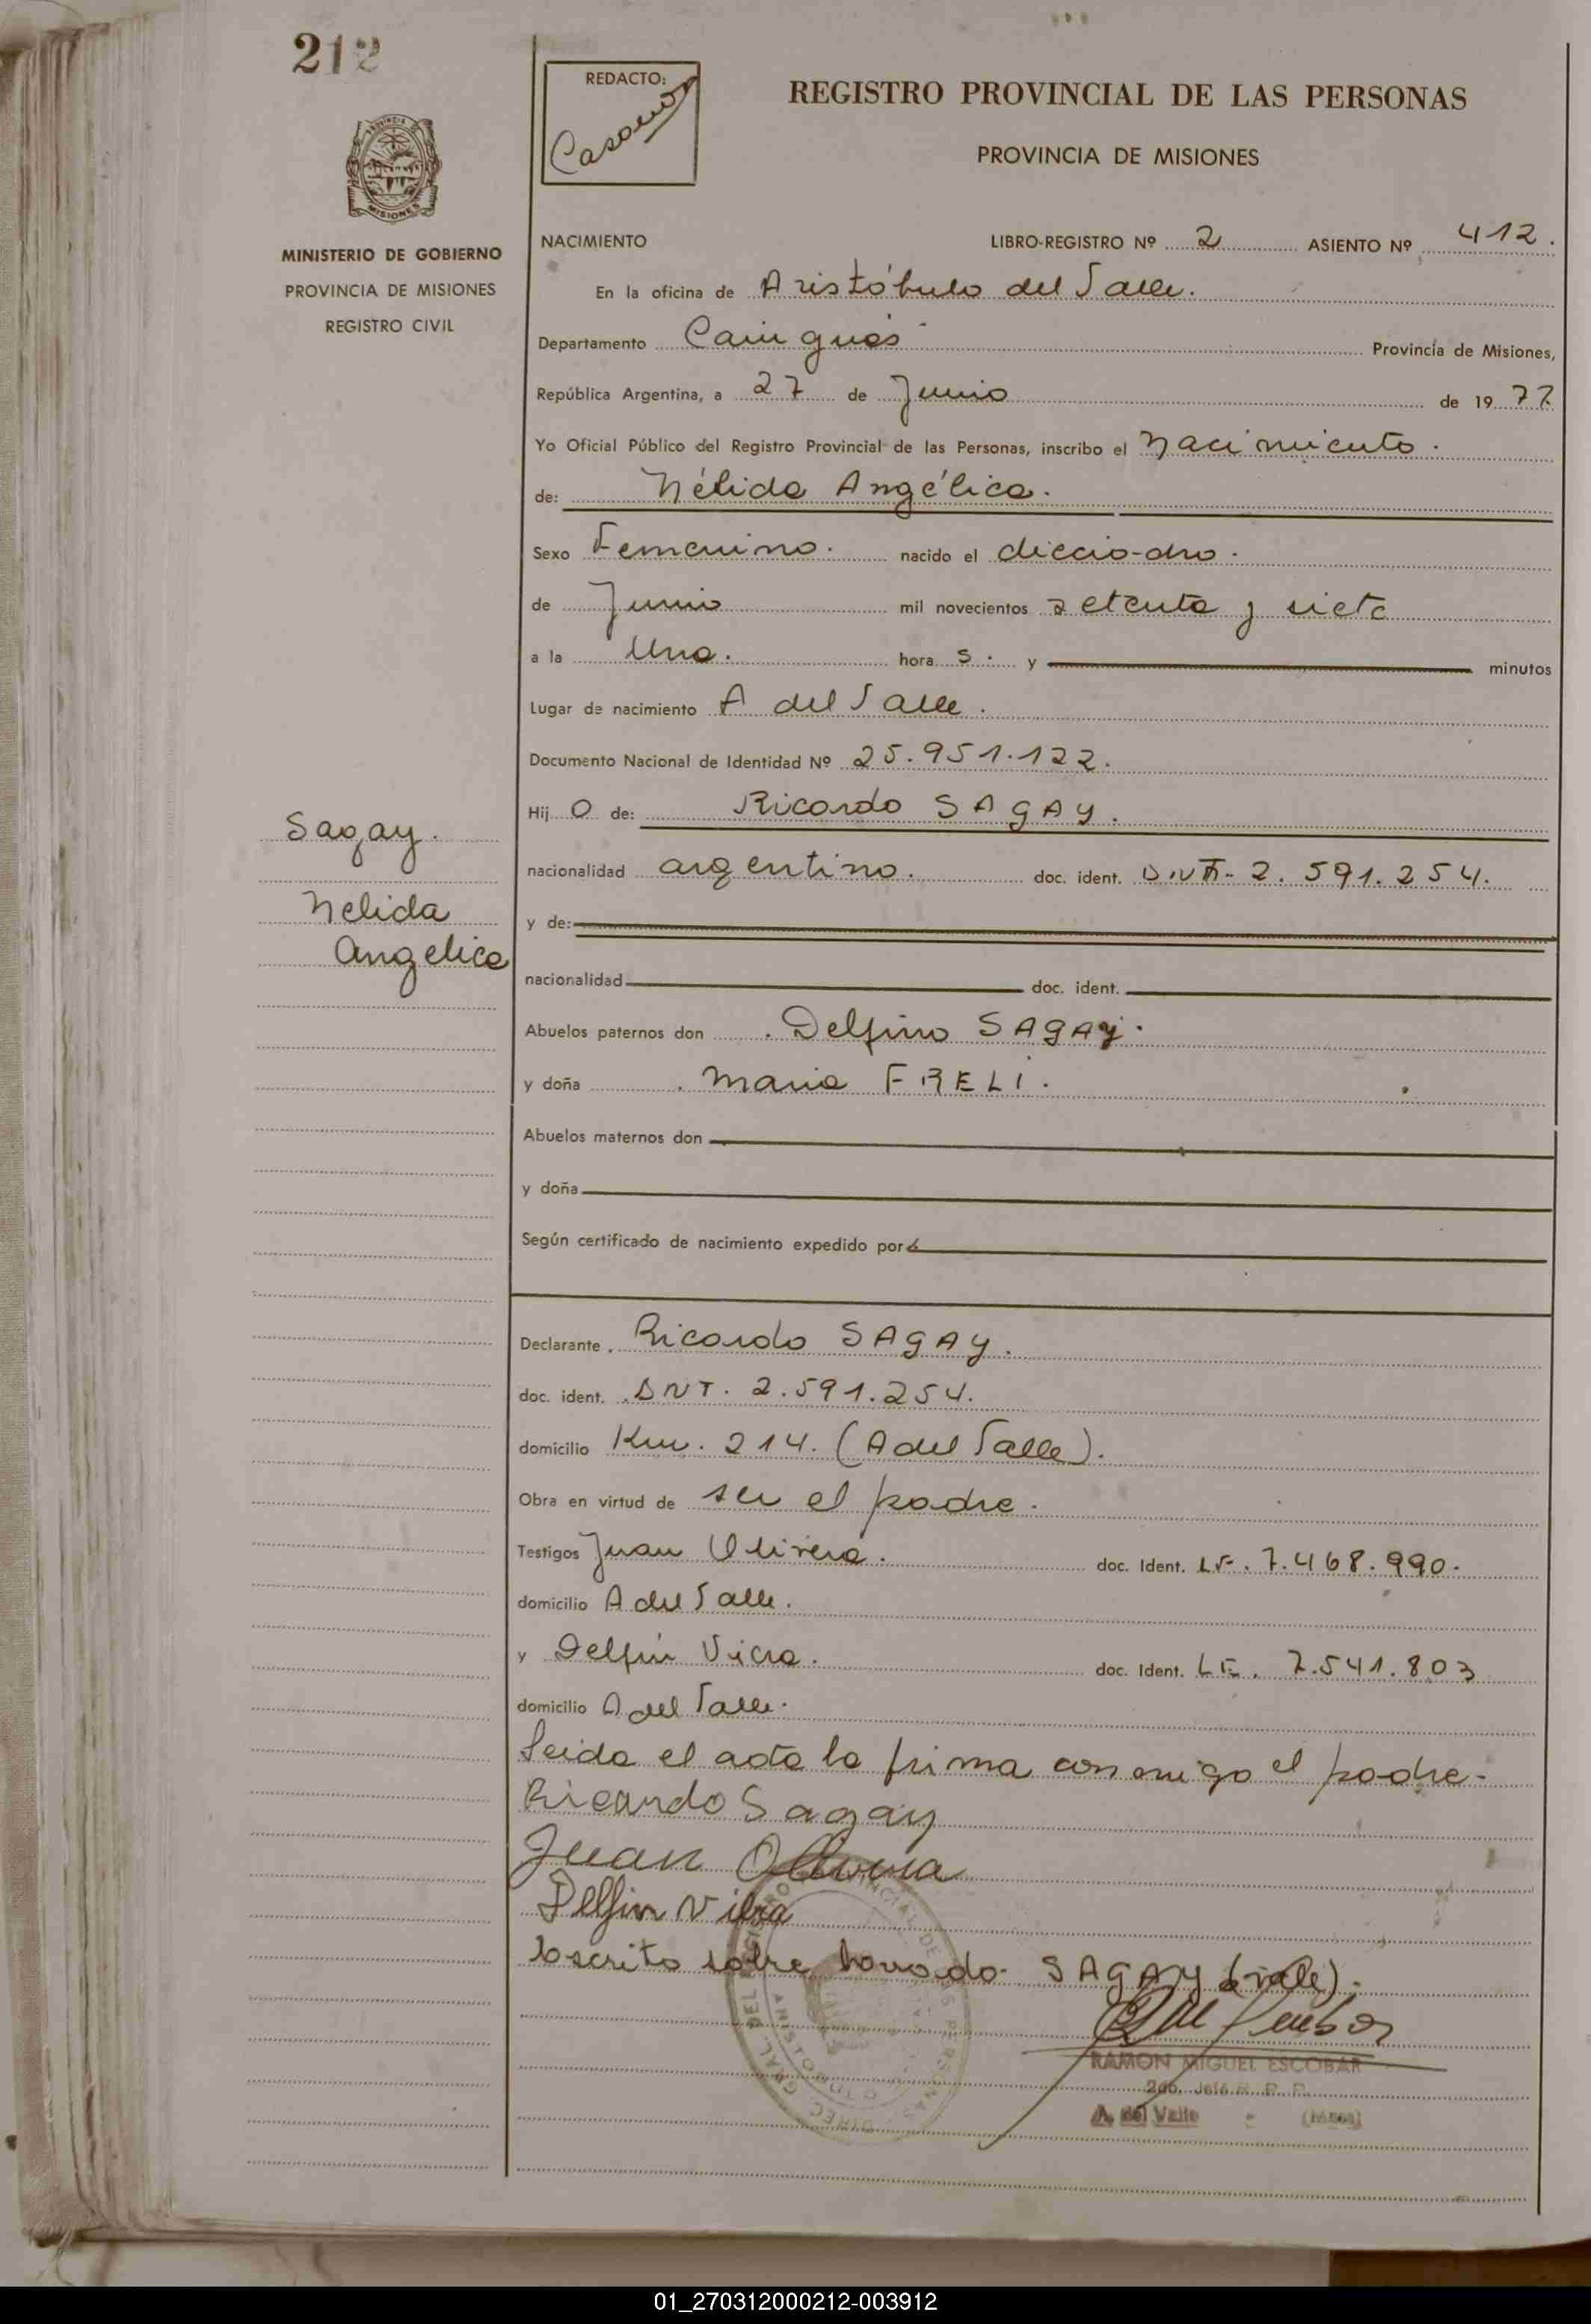 212
REDACTO:
REGISTRO PROVINCIAL DE LAS PERSONAS
PROVINCIA DE MISIONES
MISIONES
MINISTERIO DE GOBIERNO
PROVINCIA DE MISIONES
REGISTRO CIVIL
NACIMIENTO LIBRO-REGISTRO Nº 2 ASIENTO Nº 412.
En la oficina de Aristóbulo del Valle.
Departamento Cainguás Provincia de Misiones,
República Argentina, a 27 de Junio de 19 77
Yo Oficial Público del Registro Provincial de las Personas, inscribo el Nacimiento.
de: Nélida Angélica.
Sexo Femenino. nacido el diecio-cho.
de Junio mil novecientos setenta y siete
a la Una. hora s. y minutos
Lugar de nacimiento A del Valle.
Documento Nacional de Identidad Nº 25.951.122.
Hij O de: Ricardo SAGAY.
nacionalidad argentino. doc. ident. 2.591.254.
y de:
nacionalidad doc. ident.
Abuelos paternos don Delfino SAGAY.
y doña Maria FRELI.
Abuelos maternos don
y doña
Según certificado de nacimiento expedido por
Sagay.
Nelida
Angelica
Declarante. Ricardo SAGAY.
doc. ident. DNT. 2.591.254.
domicilio Km. 214. (A del Valle).
Obra en virtud de ser el padre.
Testigos Juan Olivera. doc. Ident. LE. 7.468.990.
domicilio A del Valle.
y Delfin Viera. doc. Ident. LE. 7.541.803
domicilio A del Valle.
Leida el acta la firma conmigo el padre-
Ricardo Sagay
Juan Olivera
Delfin Viera
Escrito sobre borrado. SAGAY (vale).
RAMON MIGUEL ESCOBAR
2do. Jefe R. P. P.
A. del Valle - (Mnes)
01_270312000212-003912